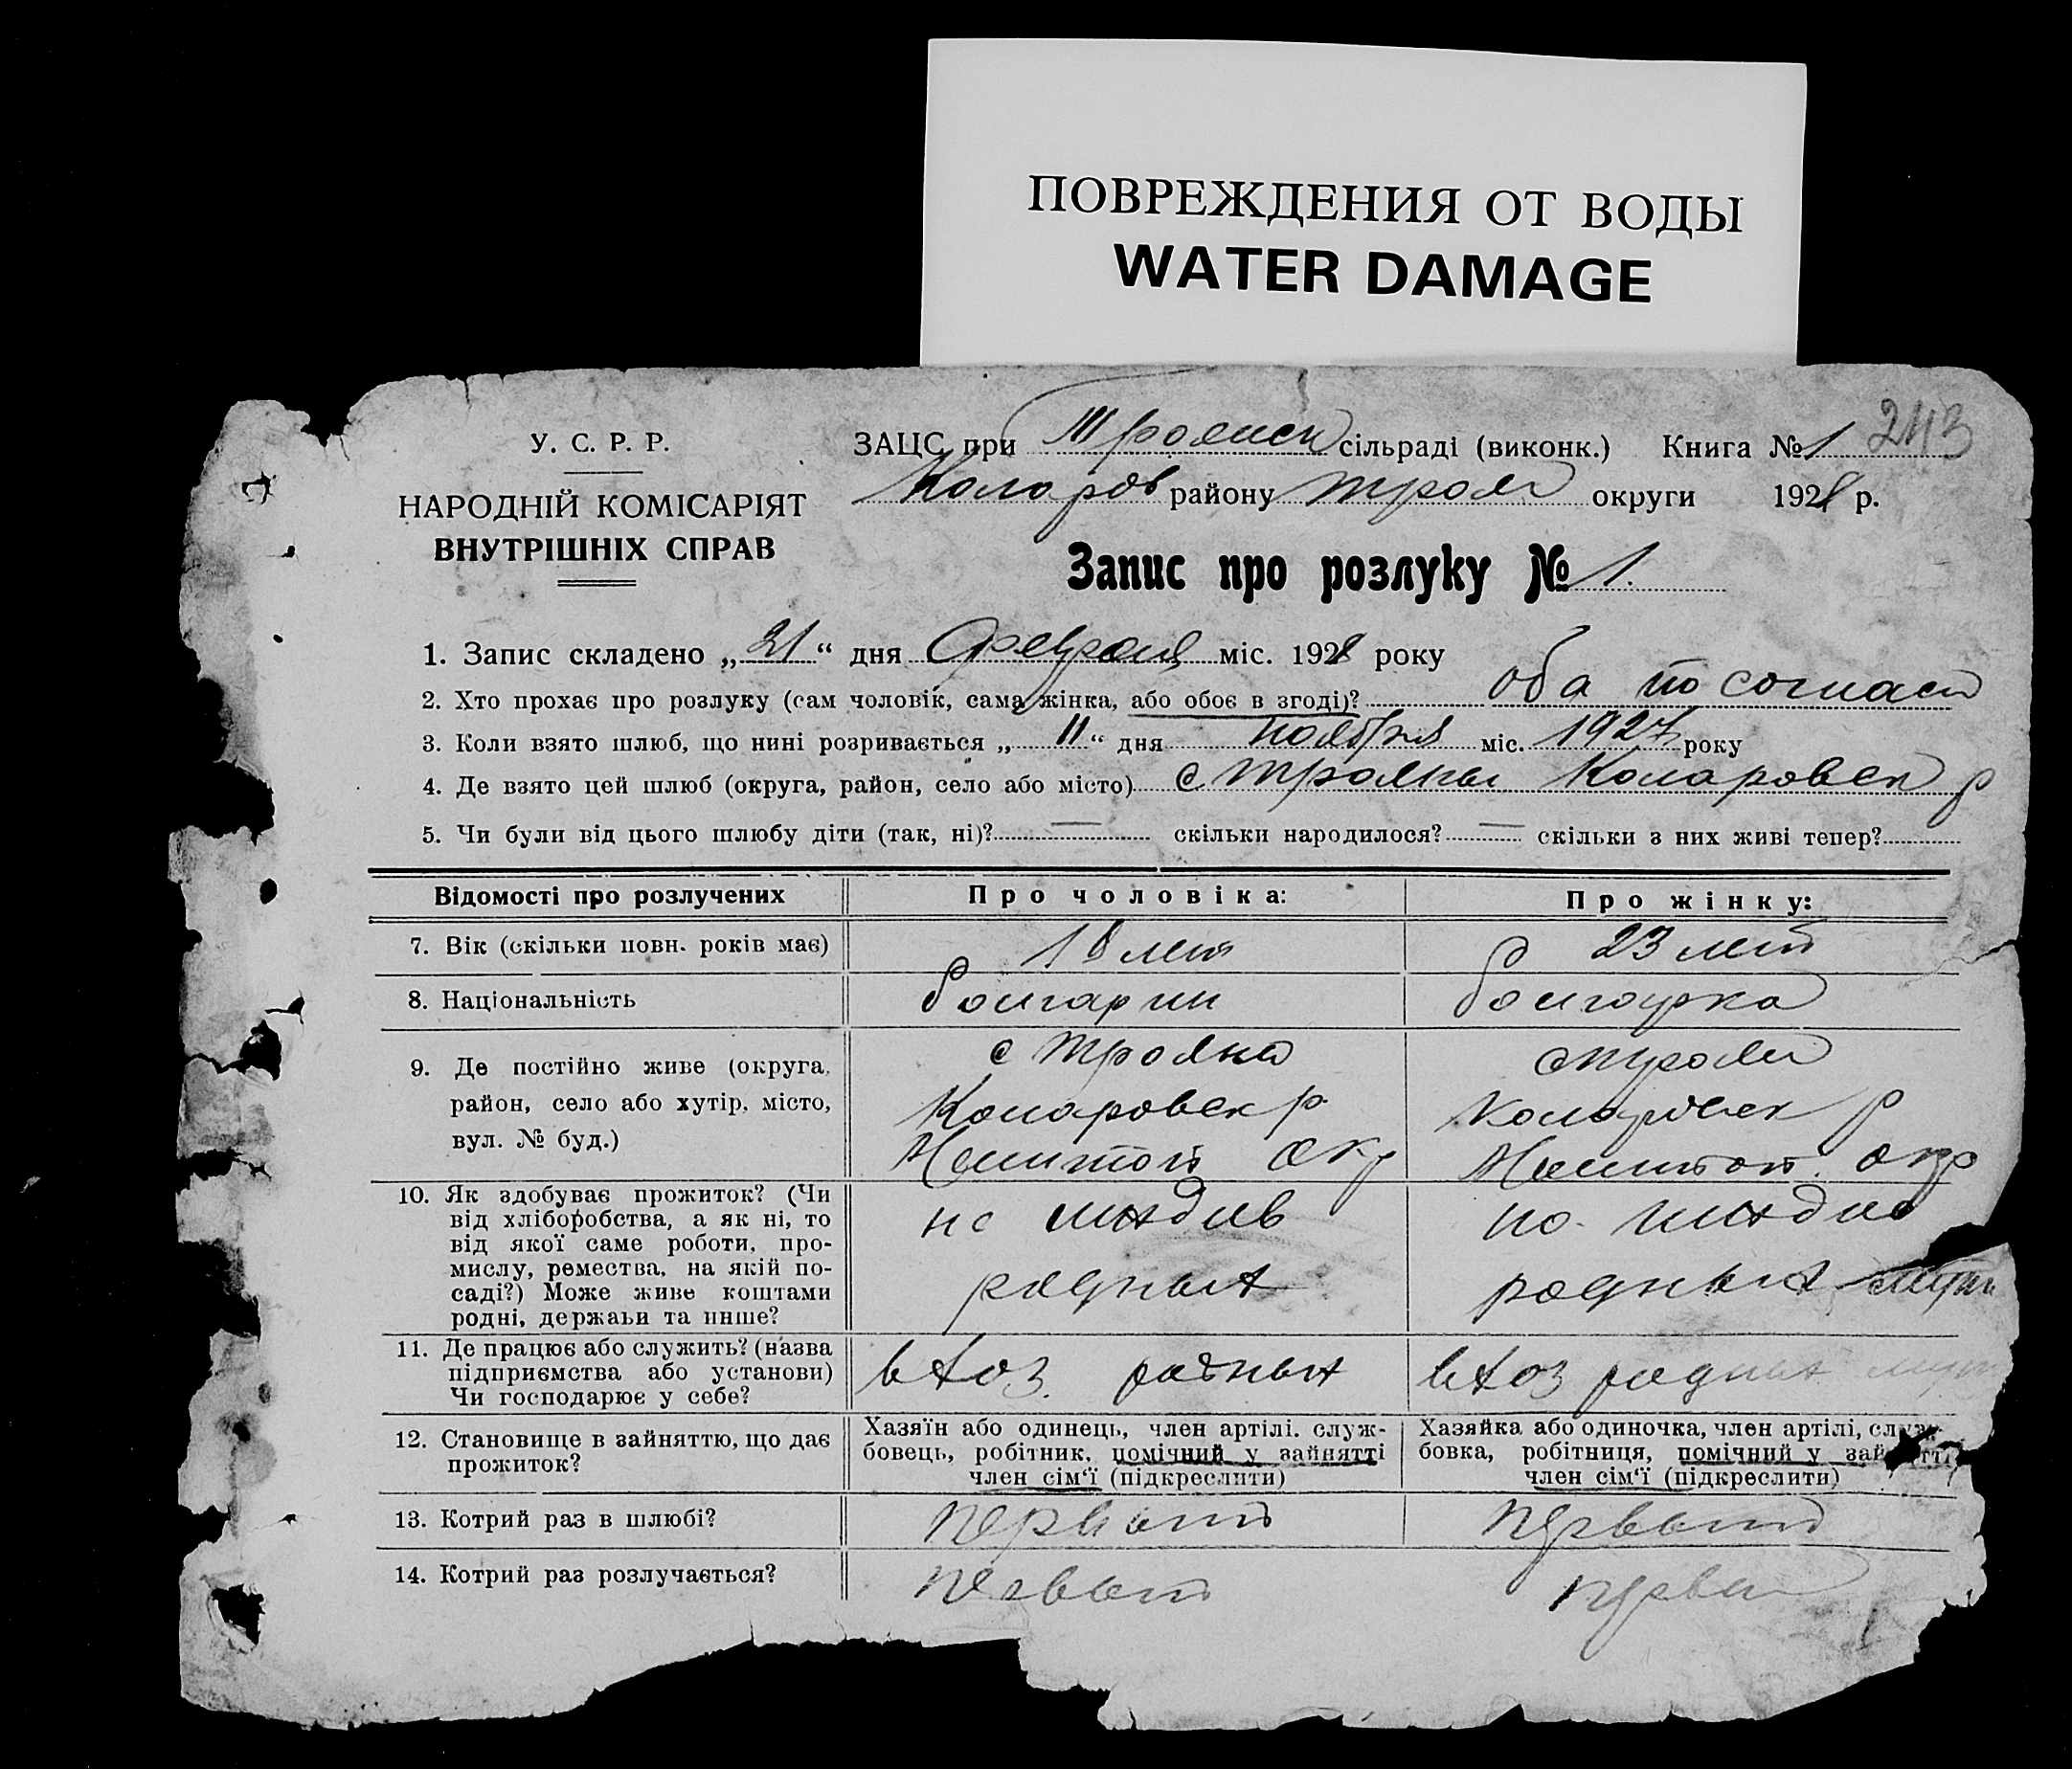 ПОВРЕЖДЕНИЯ ОТ ВОДЫ
WATER DAMAGE
243
У. С. Р. Р.
НАРОДНІЙ КОМІСАРІЯТ
ВНУТРІШНІХ СПРАВ
ЗАЦС при Троянск сільраді (виконк.) Книга № 1
Коларов району округи 1928 р.
Запис про розлуку № 1.
1. Запис складено „21“ дня февраля міс. 1928 року
2. Хто прохає про розлуку (сам чоловік, сама жінка, або обоє в згоді)? оба по согласи
3. Коли взято шлюб, що нині розривається „11“ дня ноября міс. 1927 року
4. Де взято цей шлюб (округа, район, село або місто) с Трояны Коларовск р
5. Чи були від цього шлюбу діти (так, ні)? — скільки народилося? — скільки з них живі тепер?
Відомості про розлучених
Про чоловіка:
Про жінку:
7. Вік (скільки повн. років має)
18 лет
23 лет
8. Національність
болгарин
болгарка
9. Де постійно живе (округа,
район, село або хутір, місто,
вул. № буд.)
с Трояна
Коларовск р
Мелитоп окр
с Троян
Коларовск р
Мелитоп. окр
10. Як здобуває прожиток? (Чи
від хліборобства, а як ні, то
від якої саме роботи, про-
мислу, ремества, на якій по-
саді?) Може живе коштами
родні, держави та инше?
на иждив
родных
на иждив
родных
11. Де працює або служить? (назва
підприємства або установи)
Чи господарює у себе?
в хоз. родных
в хоз родных
12. Становище в зайняттю, що дає
прожиток?
Хазяїн або одинець, член артілі, служ-
бовець, робітник, помічний у зайнятті
член сім‘ї (підкреслити)
Хазяйка або одиночка, член артілі, служ-
бовка, робітниця, помічний у зайнятті
член сім‘ї (підкреслити)
13. Котрий раз в шлюбі?
первый
первый
14. Котрий раз розлучається?
первый
первый